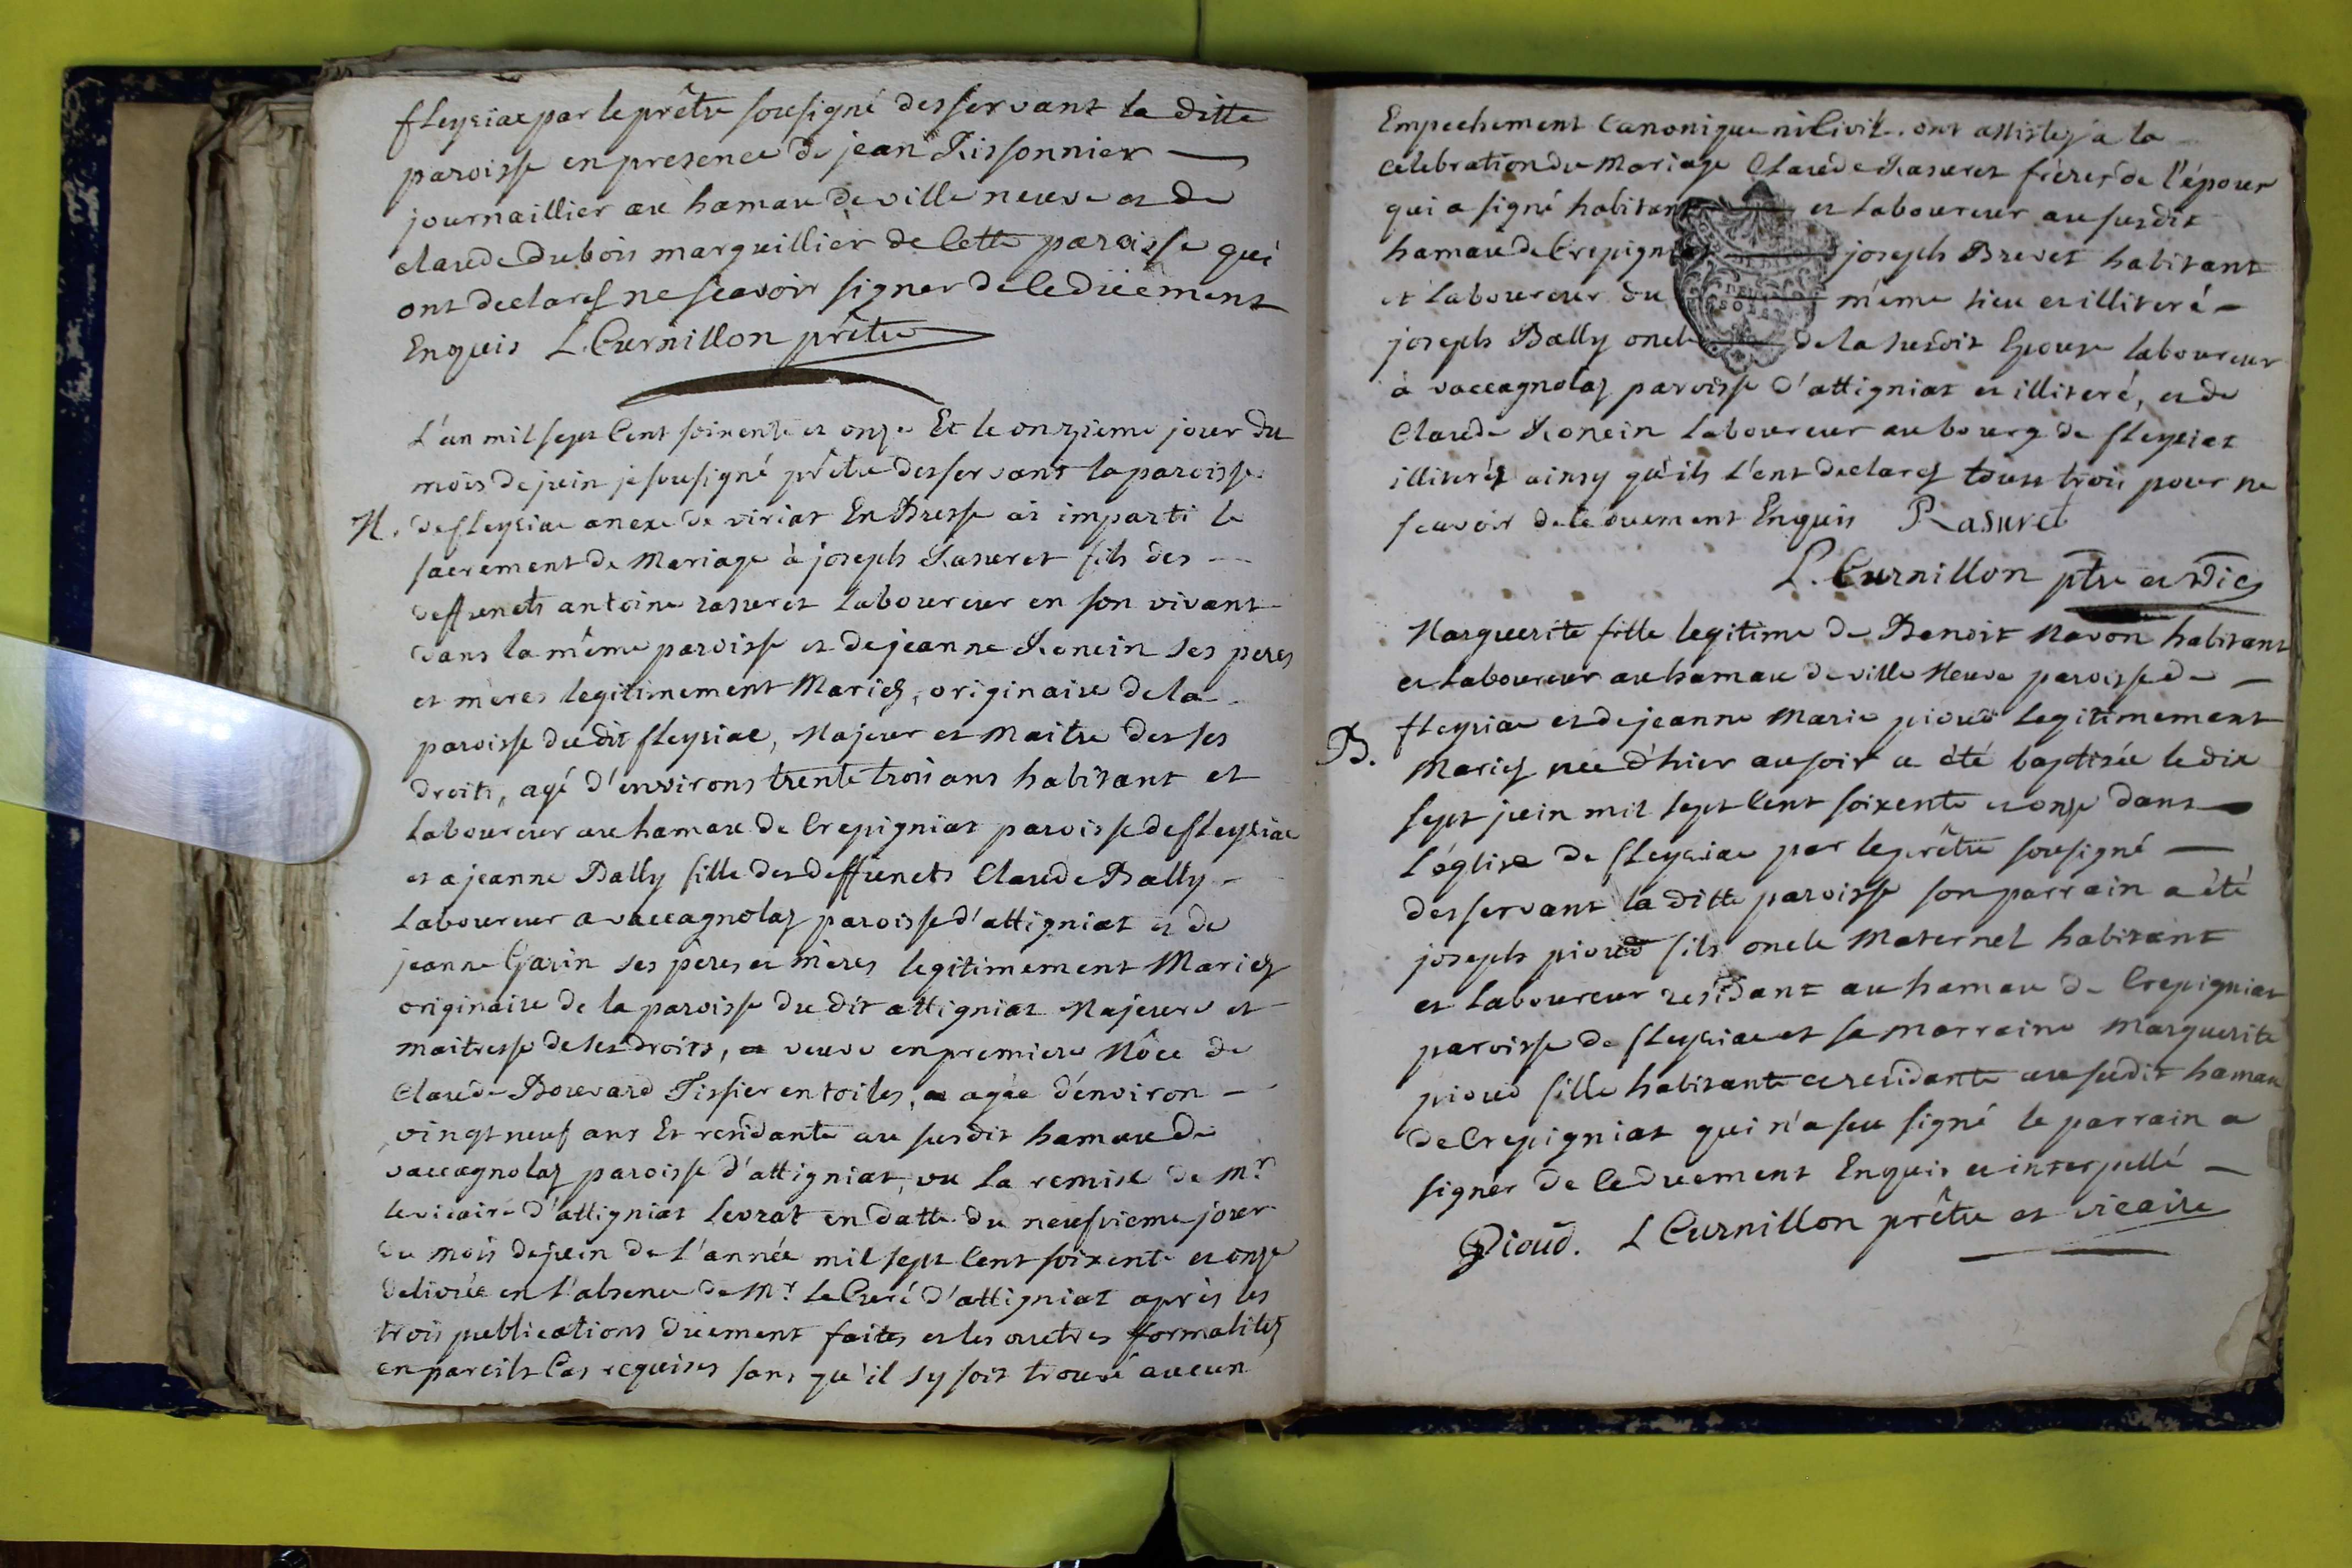 fleysiac par le prêtre sousigné desservant la ditte
paroisse en presence de jean Rissonnier
journaillier au hamau de ville neuve et de
claude Dubois marguillier de Cette paroisse qui
ont declarés ne scavoir signer de Ce düement
Enquis L. Curnillon prêtre
L'an mil sept Cent soixente et onze Et le onzieme jour du
mois de juin je sousigné prêtre desservant la paroisse
M. de fleysiac anexe de viriat En Bresse ai imparti le
sacrement de Mariage à joseph Rasuret fils des
deffuncts antoine rasuret laboureur en son vivant
dans la même paroisse et de jeanne Roncin ses peres
et meres legitimement Mariés, originaire de la
paroisse du dit fleysiac, Majeur et Maitre des ses
droits, agé d'environs trente trois ans habitant et
laboureur au hamau de Crepigniat paroisse de fleysiac
et a jeanne Bally fille des deffuncts Claude Bally
laboureur a vaccagnolaz paroisse d'attigniat et de
jeanne Garin ses pères et mères legitimement Mariés
originaire de la paroisse du dit attigniat Majeure et
maitresse de ses droits, et veuve en premiere Nôce de
Claude Bouvard Tissier en toiles, et agée d'environ
vingt neuf ans Et residante au susdit hamau de
vaccagnolaz paroisse d'attigniat, vu la remise de Mr
le vicaire d'attigniat levrat en datte du neufvieme jour
du mois de juin de l'année mil sept Cent soixente et onze
delivrée en l'absence de Mr le Curé d'attigniat après les
trois publications düement faites et les autres formalités
en pareils Cas requises sans qu'il s'y soit trouvé aucun
Empechement Canonique ni Civil. ont assistés a la
celebration du Mariage Claude Rasuret frères de l'époux
qui a signé habitant et laboureur au susdit
hamau de Crepigniat joseph Brevet habitant
et laboureur du même lieu et illiteré
joseph Bally oncle de la susdit Epouse laboureur
à vaccagnolaz paroisse d'attigniat et illiteré, et de
Claude Roncin laboureur au bourg de fleysiat
illiterés ainsy qu'ils l'ont declarés tous trois pour ne
scavoir de Ce duement Enquis Rasuret
L. Curnillon ptre et vic
Marguerite fille legitime de Benoit Navon habitant
et laboureur au hamau de ville Neuve paroisse de
B. fleysiac et de jeanne Marie pioud legitimement
Mariés née d'hier au soir a été baptisée le dix
sept juin mil sept Cent soixente et onze dans
l'église de fleysiac par le prêtre sousigné
desservant la ditte paroisse son parrain a été
joseph pioud fils oncle Maternel habitant
et laboureur residant au hamau de Crepigniat
paroisse de fleysiac et sa marraine Marguerite
pioud fille habitante et residante au sudit hamau
de Crepigniat qui n'a seu signé le parrain a
signér de Ce duement Enquis et interpellé
Pioud. L Curnillon prêtre et vicaire